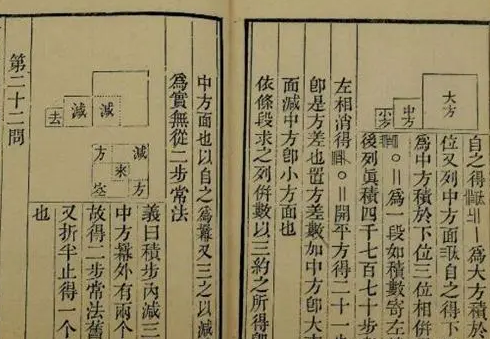 大方
中方
小方
自之得
爲大方積於
位又列中方面
自之得下
爲中方積於下位三位相併
〇॥爲一段如積數寄左
後列眞積四千七百七十步
左相消得
〇॥開平方得二十一步
卽是方差也置方差數加中方卽大
面減中方卽小方面也
依條段求之列併數以三約之所得卽
中方面也以自之爲冪又三之以減
爲實無從二步常法
減
減
去
減
方
來
方
義曰積步內減三
中方冪外有兩个
故得二步常法舊
又折半止得一个
也
第二十二問